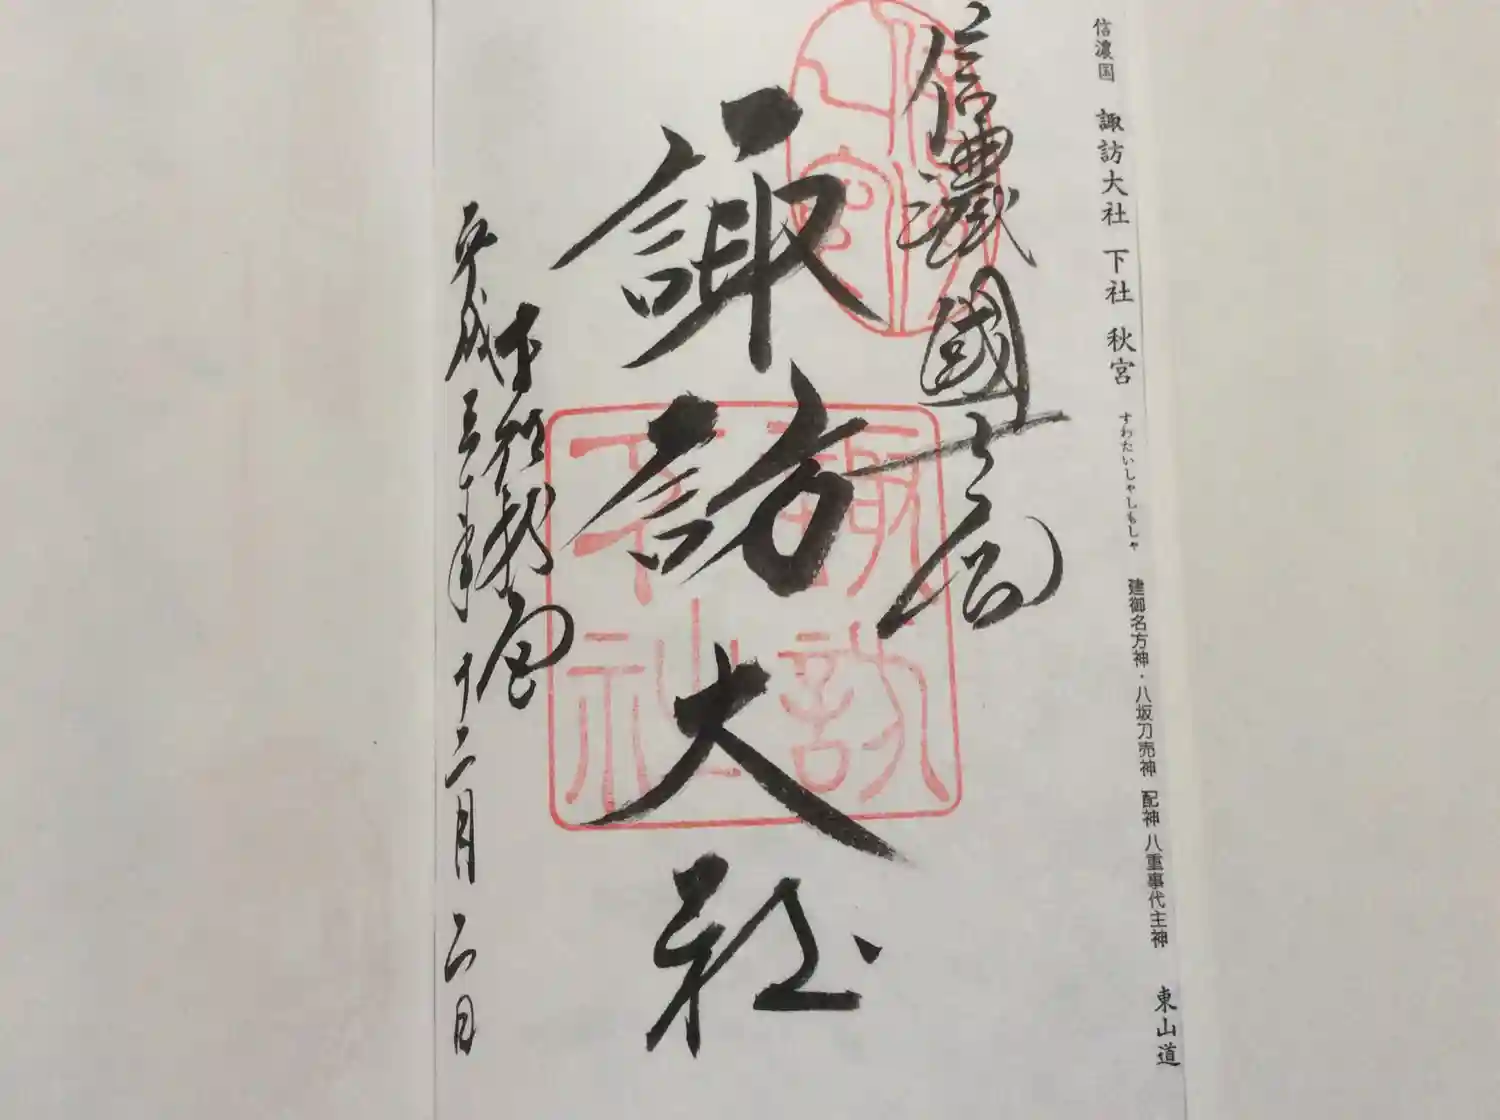 信濃国 諏訪大社 下社 秋宮 すわたいしゃしもしゃ 建御名方神・八坂刀売神 配神 八重事代主神 東山道
信濃國一之宮
諏訪大社
下社秋宮
平成三十年十二月二日
諏訪
下社